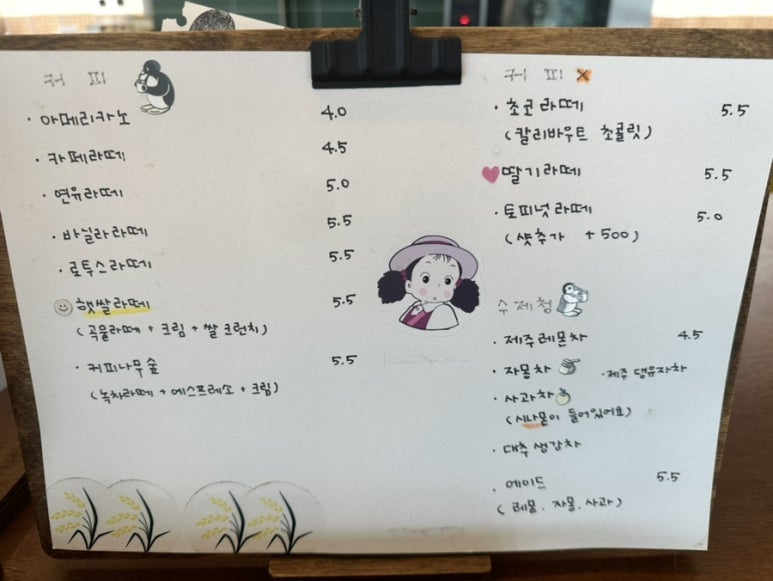 커 피
· 아메리카노 4.0
· 카페라떼 4.5
· 연유라떼 5.0
· 바닐라라떼 5.5
· 로투스라떼 5.5
햇쌀라떼 5.5
(곡물라떼 + 크림 + 쌀 크런치)
· 커피나무숲 5.5
(녹차라떼 + 에스프레소 + 크림)
커 피 X
· 초코라떼 5.5
(칼리바우트 초콜릿)
딸기라떼 5.5
· 토피넛라떼 5.0
(샷추가 +500)
수제청
· 제주레몬차 4.5
· 자몽차 · 제주 댕유자차
· 사과차
(시나몬이 들어있어요)
· 대추생강차
· 에이드 5.5
(레몬. 자몽. 사과)